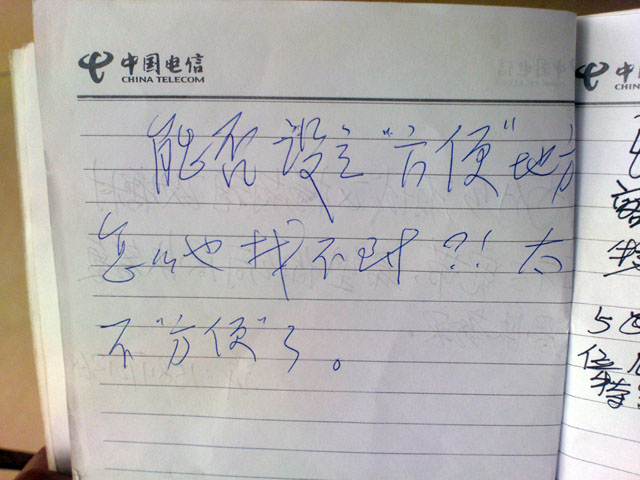 中国电信
CHINA TELECOM
能否设立"方便"地方
怎么也找不到?!太
不"方便"了。
中国
CHINA